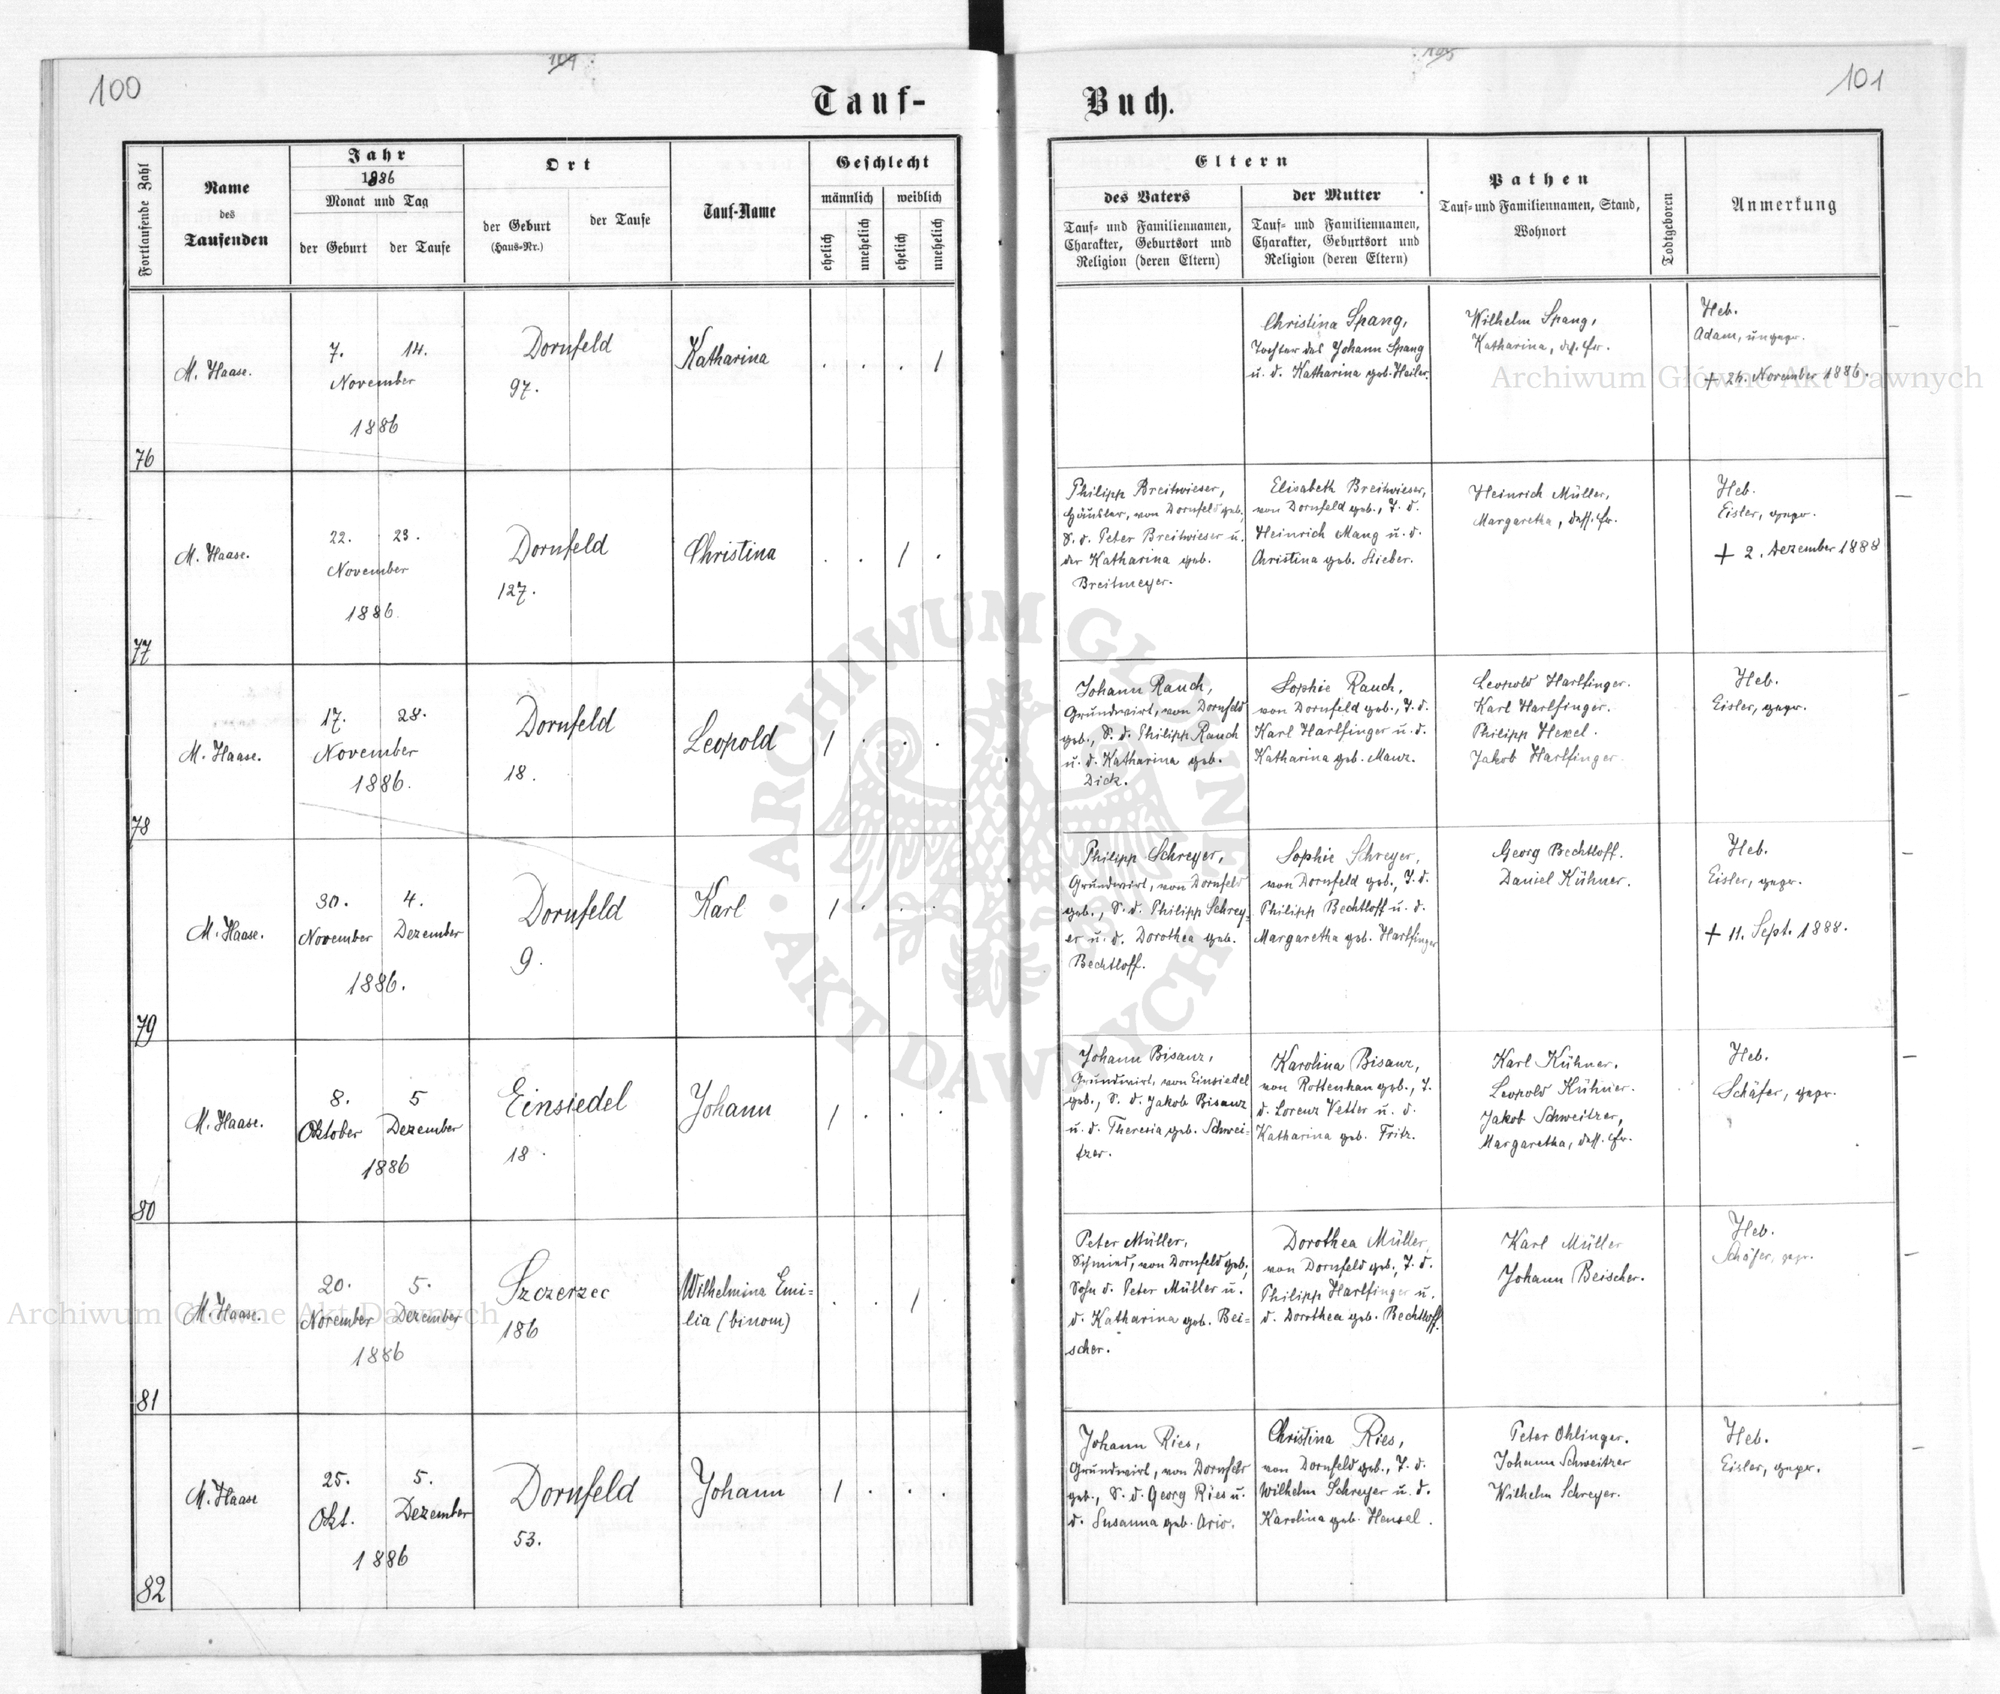 100
104
Tauf-
Fortlaufende Zahl
Name
des
Taufenden
Jahr
1886
Monat und Tag
der Geburt
der Taufe
Ort
der Geburt
(Haus-Nr.)
der Taufe
Tauf-Name
Geschlecht
männlich
weiblich
ehelich
unehelich
ehelich
unehelich
76
M. Haase.
7. 14.
November
1886
Dornfeld
97.
Katharina
. . . 1
77
M. Haase.
22. 23.
November
1886.
Dornfeld
127.
Christina
. . 1 .
78
M. Haase.
17. 28.
November
1886.
Dornfeld
18.
Leopold
1 . . .
79
M. Haase.
30. 4.
November Dezember
1886.
Dornfeld
9.
Karl
1 . . .
80
M. Haase.
8. 5
Oktober Dezember
1886
Einsiedel
18.
Johann
1 . . .
81
M. Haase.
20. 5.
November Dezember
1886
Szczerzec
186
Wilhelmina Emi-
lia (binom)
. . 1 .
82
M. Haase
25. 5.
Okt. Dezember
1886
Dornfeld
53.
Johann
1 . . .
105
101
Buch.
Eltern
des Vaters
Tauf- und Familiennamen,
Charakter, Geburtsort und
Religion (deren Eltern)
der Mutter
Tauf- und Familiennamen,
Charakter, Geburtsort und
Religion (deren Eltern)
Pathen
Tauf- und Familiennamen, Stand,
Wohnort
Todtgeboren
Anmerkung
Christina Spang,
Tochter des Johann Spang
u. d. Katharina geb. Heiler.
Wilhelm Spang,
Katharina, dess. Fr.
Heb.
Adam, ungepr.
+ 24. November 1886.
Philipp Breitwieser,
Häusler, von Dornfeld geb.,
S. d. Peter Breitwieser u.
der Katharina geb.
Breitmeyer.
Elisabeth Breitwieser,
von Dornfeld geb., T. d.
Heinrich Mang u. d.
Christina geb. Stieber.
Heinrich Müller,
Margaretha, dess. Fr.
Heb.
Eisler, gepr.
+ 2. Dezember 1888
Johann Rauch,
Grundwirt, von Dornfeld
geb., S. d. Philipp Rauch
u. d. Katharina geb.
Dick.
Sophie Rauch,
von Dornfeld geb., T. d.
Karl Harlfinger u. d.
Katharina geb. Manz.
Leopold Harlfinger.
Karl Harlfinger.
Philipp Hexel.
Jakob Harlfinger
Heb.
Eisler, gepr.
Philipp Schreyer,
Grundwirt, von Dornfeld
geb., S. d. Philipp Schrey-
er u. d. Dorothea geb.
Bechtloff.
Sophie Schreyer,
von Dornfeld geb., T. d.
Philipp Bechtloff u. d.
Margaretha geb. Harlfinger
Georg Bechtloff.
Daniel Kühner.
Heb.
Eisler, gepr.
+ 11. Sept. 1888.
Johann Bisanz,
Grundwirt, von Einsiedel
geb., S. d. Jakob Bisanz
u. d. Theresia geb. Schwei-
tzer.
Karolina Bisanz,
von Rottenhan geb., T.
d. Lorenz Vetter u. d.
Katharina geb. Fritz.
Karl Kühner.
Leopold Kühner.
Jakob Schweitzer,
Margaretha, dess. Fr.
Heb.
Schäfer, gepr.
Peter Müller,
Schmied, von Dornfeld geb.,
Sohn d. Peter Müller u.
d. Katharina geb. Bei-
scher.
Dorothea Müller,
von Dornfeld geb., T. d.
Philipp Harlfinger u.
d. Dorothea geb. Bechtloff.
Karl Müller
Johann Beischer.
Heb.
Schäfer, gepr.
Johann Ries,
Grundwirt, von Dornfeld
geb., S. d. Georg Ries u.
d. Susanna geb. Ario.
Christina Ries,
von Dornfeld geb., T. d.
Wilhelm Schreyer u. d.
Karolina geb. Hensel.
Peter Ohlinger.
Johann Schweitzer
Wilhelm Schreyer.
Heb.
Eisler, gepr.
Archiwum Główne Akt Dawnych
Archiwum Główne Akt Dawnych
ARCHIWUM GŁÓWNE · AKT DAWNYCH ·